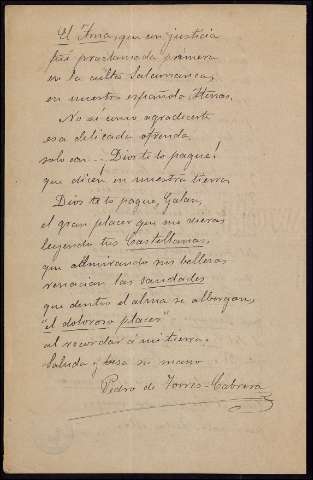 El Ama, que en justicia
fué proclamada primera
en la culta Salamanca,
en nuestra española Atenas.
No sé como agradecerte
esa delicada ofrenda,
solo con... Dios te lo pague!
que dicen en nuestra tierra.
Dios te lo pague, Galan,
el gran placer que me dieras
leyendo tus Castellanas,
que al admirando sus bellezas
renacian las saudades
que dentro el alma se albergan,
"el doloroso placer"
al recordar á mi tierra.
Saluda y besa su mano
Pedro de Torres-Cabrera